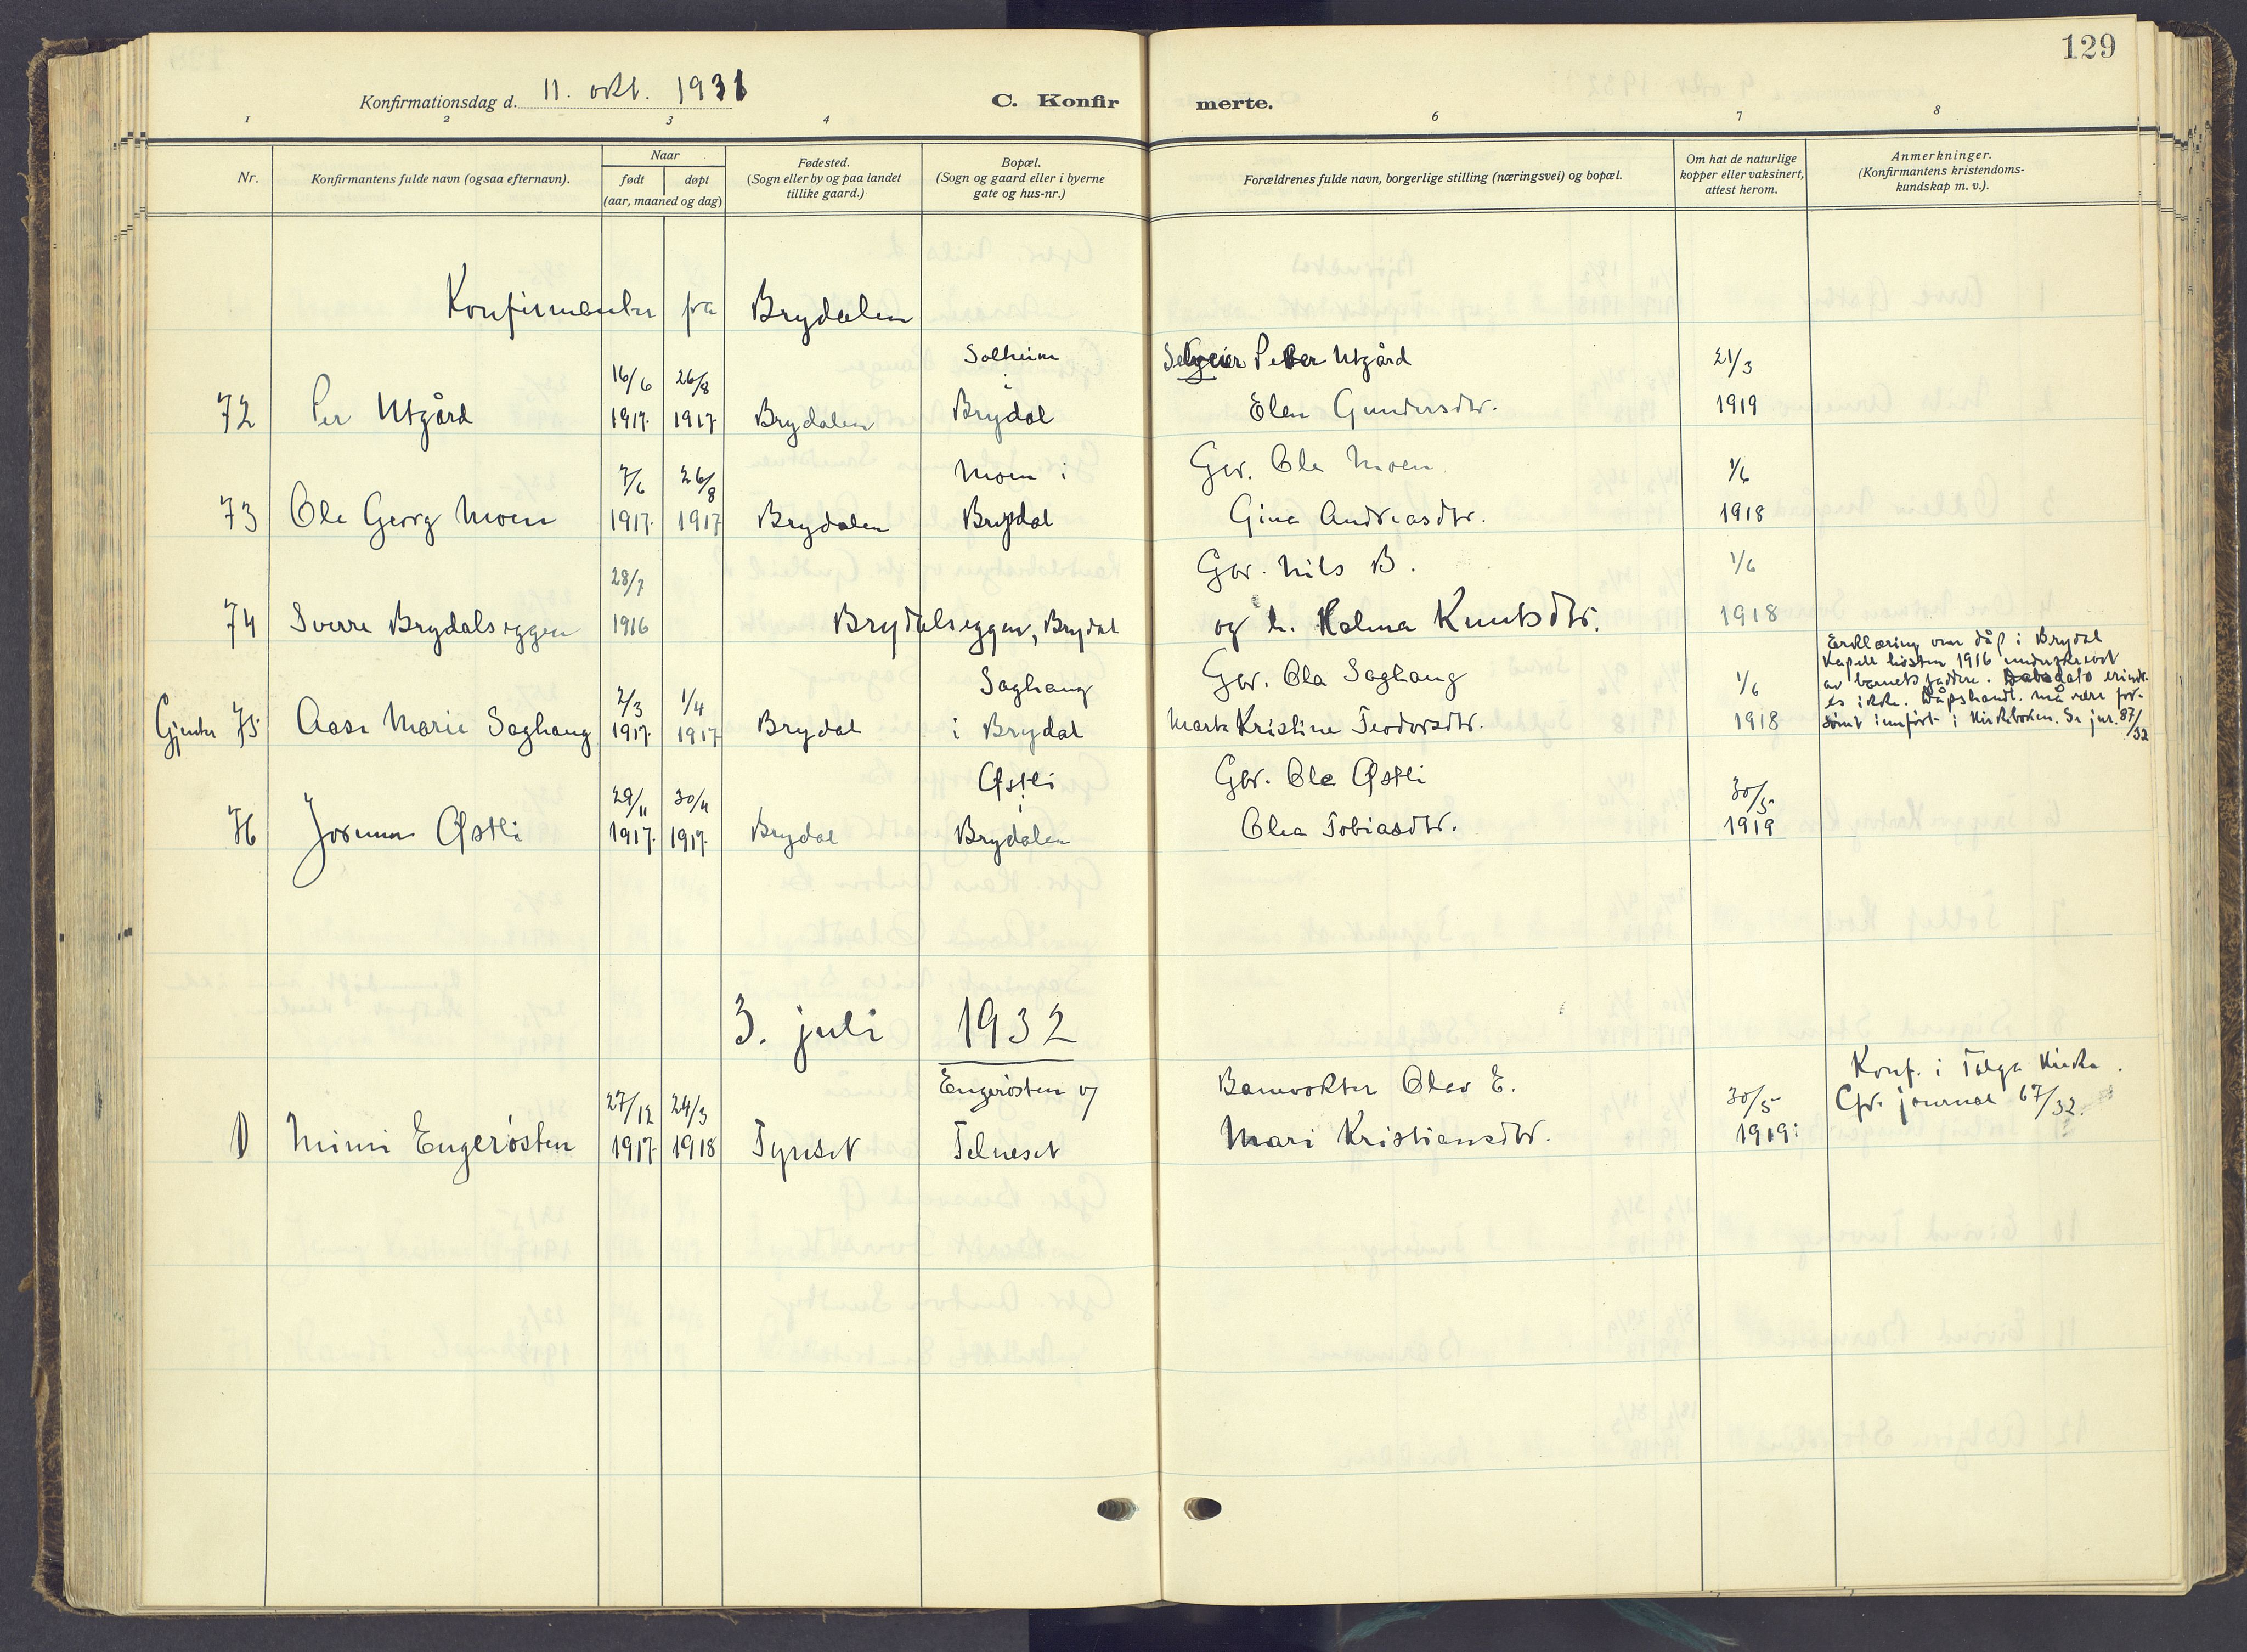 129
Konfirmationsdag d. 11. okt. 1931
C. Konfirmerte.
1 2 3 4 6 7 8
Nr.
Konfirmantens fulde navn (ogsaa efternavn).
Naar
født døpt
(aar, maaned og dag)
Fødested.
(Sogn eller by og paa landet
tillike gaard.)
Bopæl.
(Sogn og gaard eller i byerne
gate og hus-nr.)
Forældrenes fulde navn, borgerlige stilling (næringsvei) og bopæl.
Om hat de naturlige
kopper eller vaksinert,
attest herom.
Anmerkninger.
(Konfirmantens kristendoms-
kundskap m. v.).
Konfirmanter fra Brydalen
16/6 26/8 Solheim i Selveier Peder Utgård 21/3
72 Per Utgård 1917. 1917 Brydalen Brydal Elen Gundersdtr. 1919
7/6 26/8 Moen i Gbr. Ole Moen. 1/6
73 Ole Georg Moen 1917. 1917 Brydalen Brydal Gina Andreasdtr. 1918
28/7 Gbr. Nils B. 1/6
74 Sverre Brydalseggen 1916 Brydalseggen, Brydal og h. Halma Knutsdtr. 1918
Erklæring om dåp i Brydal
Kapell høsten 1916 underskrevet
av barnets faddere. dato erindr-
es ikke. Dåpshandl. må være for-
sømt innført i Kirkeboken. Se jnr. 87/32
2/3 1/4 Saghaug Gbr. Ola Saghaug 1/6
Gjenter 75 Aase Marie Saghaug 1917. 1917 Brydal i Brydal Marte Kristine Teodorsdtr. 1918
29/11 30/11 Østli i Gbr. Ole Østli 30/5
76 Jorunn Østli 1917. 1917. Brydal Brydalen Olea Tobiasdtr. 1919
3. juli 1932
27/12 24/3 Engerösten Banevokter Olav E. 30/5 Konf. i Tolga Kirke.
1 Mimi Engerösten 1917. 1918 Tynset Telneset Mari Kristiansdtr. 1919: Cfr. journal 67/32.